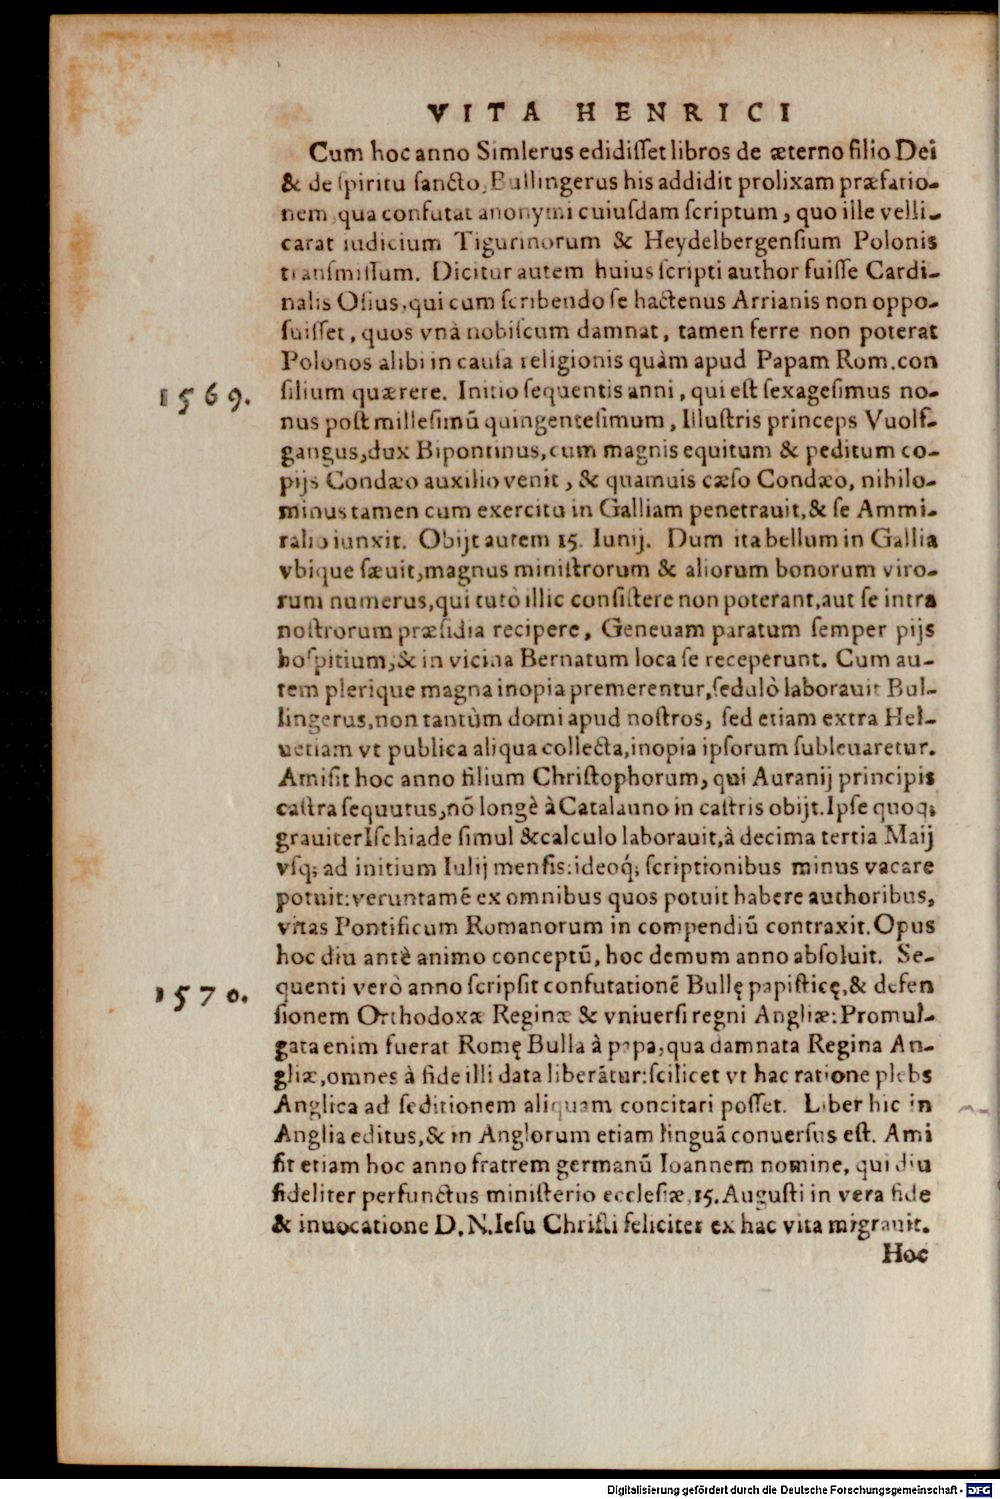 VITA HENRICI
Cum hoc anno Simlerus edidiſſet libros de æterno filio Dei
& de ſpiritu ſancto, Bullingerus his addidit prolixam præfatio-
nem, qua confutat anonymi cuiuſdam ſcriptum, quo ille velli-
carat iudicium Tigurinorum & Heydelbergenſium Polonis
tranſmiſſum. Dicitur autem huius ſcripti author fuiſſe Cardi-
nalis Oſius, qui cum ſcribendo ſe hactenus Arrianis non oppo-
ſuiſſet, quos vnà nobiſcum damnat, tamen ferre non poterat
Polonos alibi in cauſa religionis quàm apud Papam Rom. con
1569. ſilium quærere. Initio ſequentis anni, qui eſt ſexageſimus no-
nus poſt milleſimū quingenteſimum, Illuſtris princeps Vuolf-
gangus, dux Bipontinus, cum magnis equitum & peditum co-
pijs Condæo auxilio venit, & quamuis cæſo Condæo, nihilo-
minus tamen cum exercitu in Galliam penetrauit, & ſe Ammi-
ralio iunxit. Obijt autem 15. Iunij. Dum ita bellum in Gallia
vbique ſæuit, magnus miniſtrorum & aliorum bonorum viro-
rum numerus, qui tutò illic conſiſtere non poterant, aut ſe intra
noſtrorum præſidia recipere, Geneuam paratum ſemper pijs
hoſpitium, & in vicina Bernatum loca ſe receperunt. Cum au-
tem plerique magna inopia premerentur, ſedulò laborauit Bul-
lingerus, non tantùm domi apud noſtros, ſed etiam extra Hel-
uetiam vt publica aliqua collecta, inopia ipſorum ſubleuaretur.
Amiſit hoc anno filium Chriſtophorum, qui Auranij principis
caſtra ſequutus, nō longè à Catalauno in caſtris obijt. Ipſe quoq;
grauiter Iſchiade ſimul & calculo laborauit, à decima tertia Maij
vſq; ad initium Iulij menſis: ideoq́; ſcriptionibus minus vacare
potuit: veruntamē ex omnibus quos potuit habere authoribus,
vitas Pontificum Romanorum in compendiū contraxit. Opus
hoc diu antè animo conceptū, hoc demum anno abſoluit. Se-
1570. quenti verò anno ſcripſit confutationē Bullę papiſticę, & defen
ſionem Orthodoxæ Reginæ & vniuerſi regni Angliæ: Promul-
gata enim fuerat Romę Bulla à papa, qua damnata Regina An-
gliæ, omnes à fide illi data liberātur: ſcilicet vt hac ratione plebs
Anglica ad ſeditionem aliquam concitari poſſet. Liber hic in
Anglia editus, & in Anglorum etiam linguā conuerſus eſt. Ami
ſit etiam hoc anno fratrem germanū Ioannem nomine, qui diu
fideliter perfunctus miniſterio eccleſiæ, 15. Auguſti in vera fide
& inuocatione D. N. Ieſu Chriſti feliciter ex hac vita migrauit.
Hoc
Digitalisierung gefördert durch die Deutsche Forschungsgemeinschaft - DFG